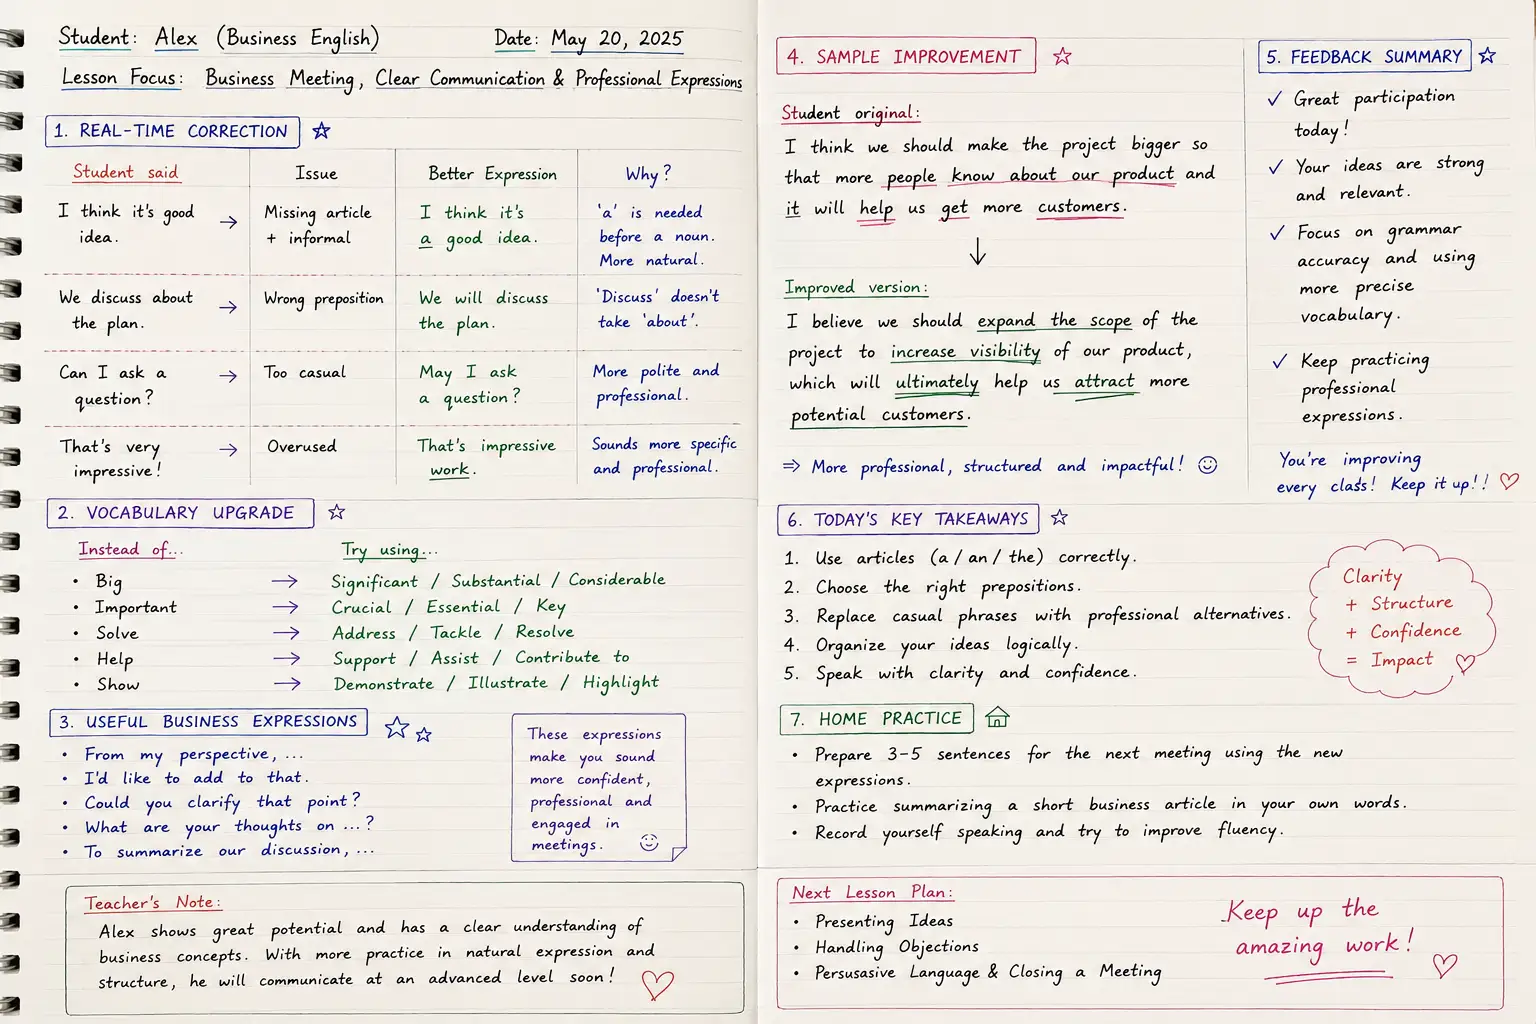 Student: Alex (Business English)
Date: May 20, 2025
Lesson Focus: Business Meeting, Clear Communication & Professional Expressions
1. REAL-TIME CORRECTION
Student said
Issue
Better Expression
Why?
I think it's good
idea.
→
Missing article
+ informal
I think it's
a good idea.
'a' is needed
before a noun.
More natural.
We discuss about
the plan.
→
Wrong preposition
We will discuss
the plan.
'Discuss' doesn't
take 'about'.
Can I ask a
question?
→
Too casual
May I ask
a question?
More polite and
professional.
That's very
impressive!
→
Overused
That's impressive
work.
Sounds more specific
and professional.
2. VOCABULARY UPGRADE
Instead of...
Try using...
• Big → Significant / Substantial / Considerable
• Important → Crucial / Essential / Key
• Solve → Address / Tackle / Resolve
• Help → Support / Assist / Contribute to
• Show → Demonstrate / Illustrate / Highlight
3. USEFUL BUSINESS EXPRESSIONS
• From my perspective, ...
• I'd like to add to that.
• Could you clarify that point?
• What are your thoughts on ...?
• To summarize our discussion, ...
These expressions
make you sound
more confident,
professional and
engaged in
meetings.
Teacher's Note:
Alex shows great potential and has a clear understanding of
business concepts. With more practice in natural expression and
structure, he will communicate at an advanced level soon!
4. SAMPLE IMPROVEMENT
Student original:
I think we should make the project bigger so
that more people know about our product and
it will help us get more customers.
Improved version:
I believe we should expand the scope of the
project to increase visibility of our product,
which will ultimately help us attract more
potential customers.
⇒ More professional, structured and impactful!
5. FEEDBACK SUMMARY
✓ Great participation
today!
✓ Your ideas are strong
and relevant.
✓ Focus on grammar
accuracy and using
more precise
vocabulary.
✓ Keep practicing
professional
expressions.
You're improving
every class! Keep it up!!
6. TODAY'S KEY TAKEAWAYS
1. Use articles (a / an / the) correctly.
2. Choose the right prepositions.
3. Replace casual phrases with professional alternatives.
4. Organize your ideas logically.
5. Speak with clarity and confidence.
Clarity
+ Structure
+ Confidence
= Impact
7. HOME PRACTICE
• Prepare 3-5 sentences for the next meeting using the new
expressions.
• Practice summarizing a short business article in your own words.
• Record yourself speaking and try to improve fluency.
Next Lesson Plan:
• Presenting Ideas
• Handling Objections
• Persusasive Language & Closing a Meeting
Keep up the
amazing work!